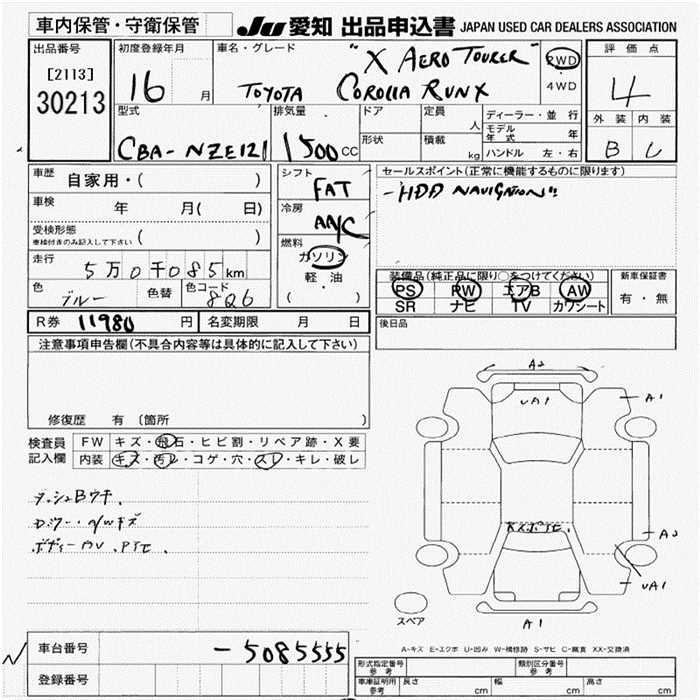 車内保管・守衛保管 JU 愛知 出品申込書 JAPAN USED CAR DEALERS ASSOCIATION
出品番号
[2113]
30213
初度登録年月
16 月
車名・グレード
"X AERO TOURER"
TOYOTA COROLLA RUNX
2WD
4WD
評価点
4
外装 内装
B C
型式
CBA-NZE121
排気量
1500 CC
ドア
形状
定員
人
積載
kg
ディーラー・並行
モデル年式 年
ハンドル 左・右
車歴 自家用・( )
車検 年 月( 日)
受検形態
車検付きのみ記入して下さい ( )
走行 5万0千085km
色 ブルー 色替 色コード 8Q6
シフト
FAT
冷房
AAC
燃料
ガソリン
軽・油
( ・ )
セールスポイント(正常に機能するものに限ります)
-HDD NAVIGATION"
装備品(純正品に限り○をつけてください)
PS PW エアB AW
SR ナビ TV カワシート
新車保証書
有・無
R券 11980 円 名変期限 月 日
後日品
注意事項申告欄(不具合内容等は具体的に記入して下さい)
修復歴 有 (箇所 )
検査員 FW キズ・飛石・ヒビ割・リペア跡・X要
記入欄 内装 キズ・汚レ・コゲ・穴・スレ・キレ・破レ
A2
UA1
A1
A2
UA1
A1
スペア
A-キズ E-エクボ U-凹み W-補修跡 S-サビ C-腐食 XX-交換済
車台番号 -5085555
登録番号
形式指定番号 参考
類別区分番号 参考
車庫証明用 参考 長さ cm 幅 cm 高さ cm